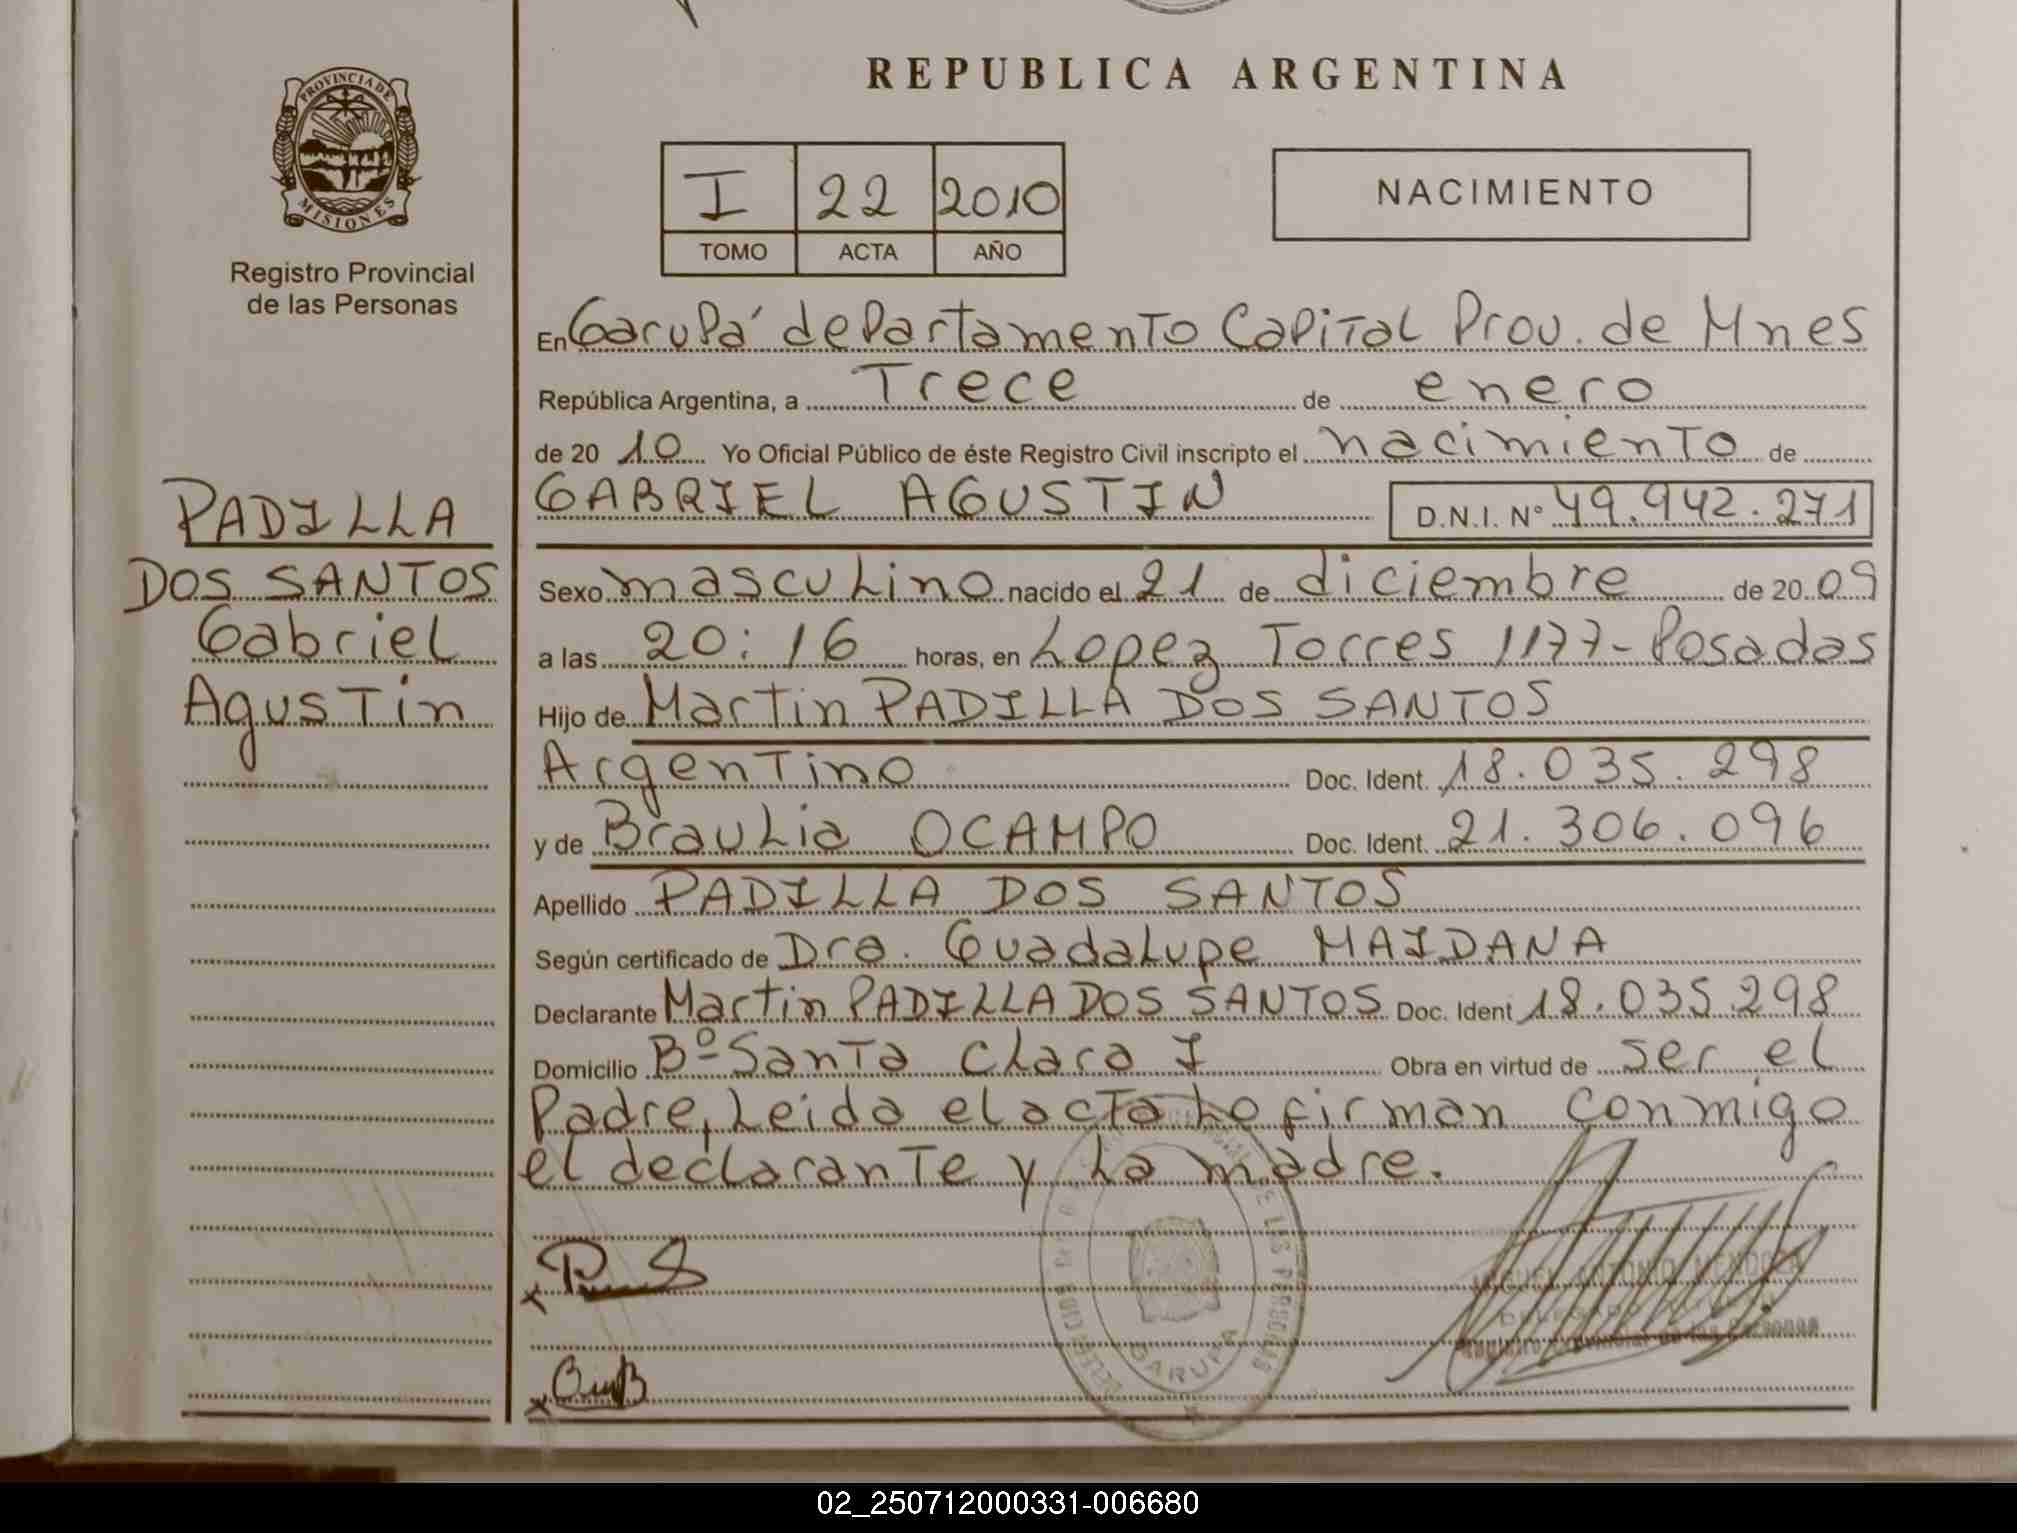 REPUBLICA ARGENTINA
PROVINCIA DE
MISIONES
Registro Provincial
de las Personas
I 22 2010
TOMO ACTA AÑO
NACIMIENTO
En Garupá departamento Capital Prov. de Mnes
República Argentina, a Trece de enero
de 20 10 Yo Oficial Público de éste Registro Civil inscripto el nacimiento de
GABRIEL AGUSTIN D.N.I. Nº 49.942.271
PADILLA
DOS SANTOS
Gabriel
Agustin
Sexo masculino nacido el 21 de diciembre de 20 09
a las 20:16 horas, en Lopez Torres 1177-Posadas
Hijo de Martin PADILLA DOS SANTOS
Argentino Doc. Ident. 18.035.298
y de Braulia OCAMPO Doc. Ident. 21.306.096
Apellido PADILLA DOS SANTOS
Según certificado de Dra. Guadalupe MAIDANA
Declarante Martin PADILLA DOS SANTOS Doc. Ident 18.035.298
Domicilio Bº Santa Clara I Obra en virtud de ser el
Padre, Leida el acta lo firman conmigo
el declarante y la madre.
DE LAS PERSONAS
GARUPA
ANTONIO MENDOZA
DELEGADO
Registro Provincial de las Personas
02_250712000331-006680